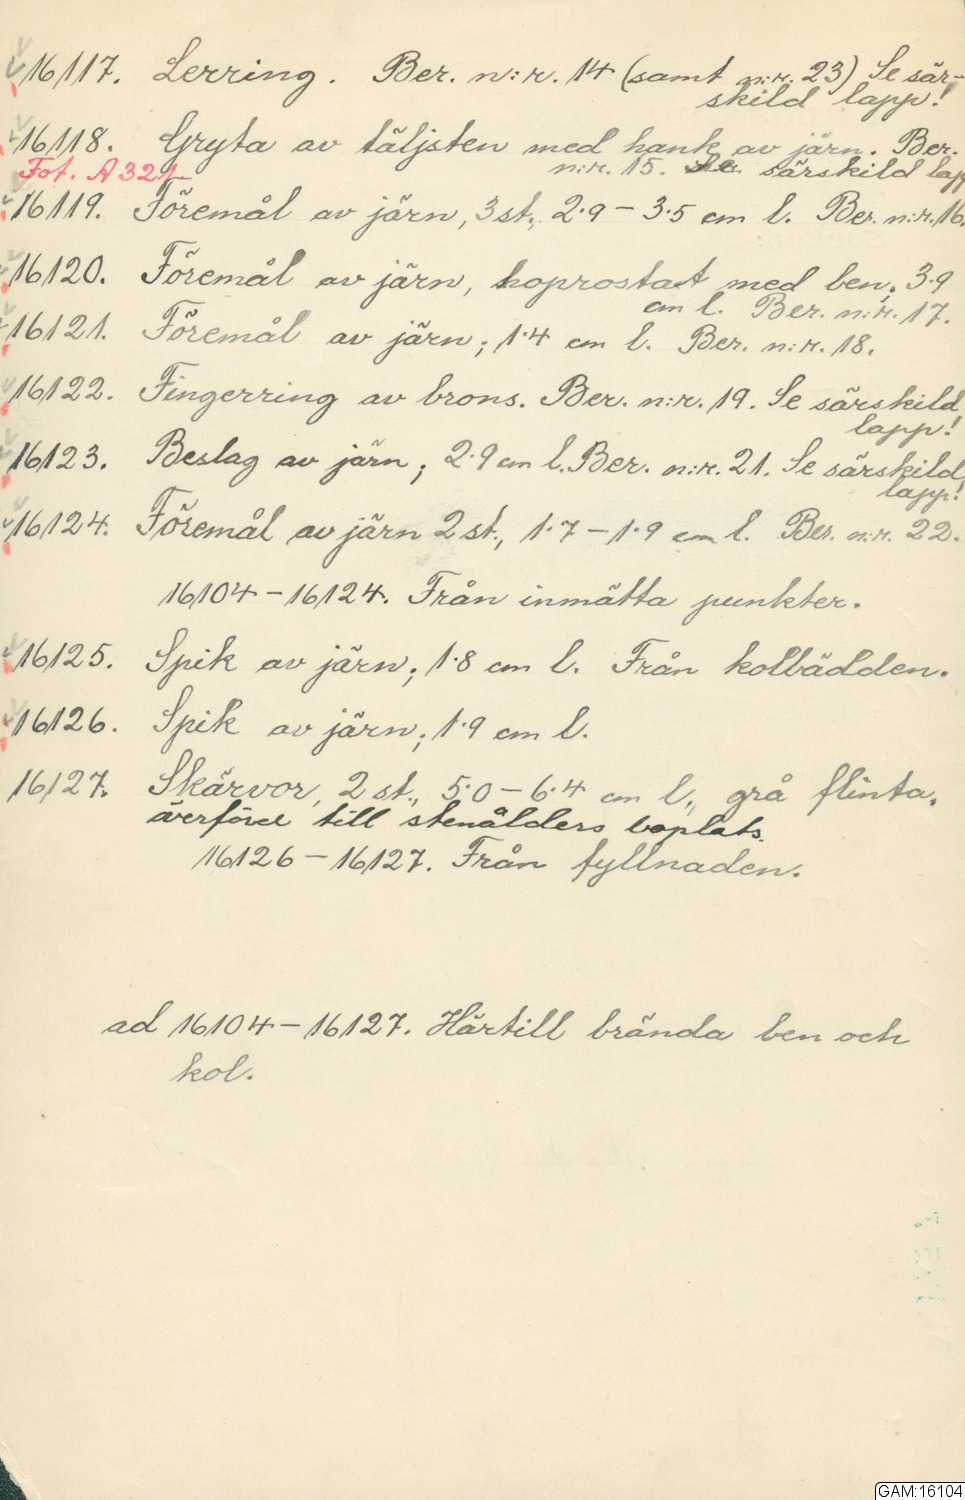 16117. Lerring. Ber. n:r. 14 (samt n:r. 23) Se sär-
skild lapp!
16118. Gryta av täljsten med hank av järn. Ber.
Fot. A 321 n:r. 15. Se särskild lapp
16119. Föremål av järn, 3 st., 2.9 – 3.5 cm l. Ber. n:r. 16.
16120. Föremål av järn, hoprostat med ben, 3.9
cm l. Ber. n:r. 17.
16121. Föremål av järn; 1.4 cm l. Ber. n:r. 18.
16122. Fingerring av brons. Ber. n:r. 19. Se särskild
lapp!
16123. Beslag av järn; 2.9 cm l. Ber. n:r. 21. Se särskild
lapp!
16124. Föremål av järn 2 st., 1.7 – 1.9 cm l. Ber. n:r. 22.
16104 – 16124. Från inmätta punkter.
16125. Spik av järn; 1.8 cm l. Från kolbädden.
16126. Spik av järn; 1.9 cm l.
16127. Skärvor, 2 st., 5.0 – 6.4 cm l., grå flinta.
överförd till stenålders boplats.
16126 – 16127. Från fyllnaden.
ad 16104 – 16127. Härtill brända ben och
kol.
GAM:16104